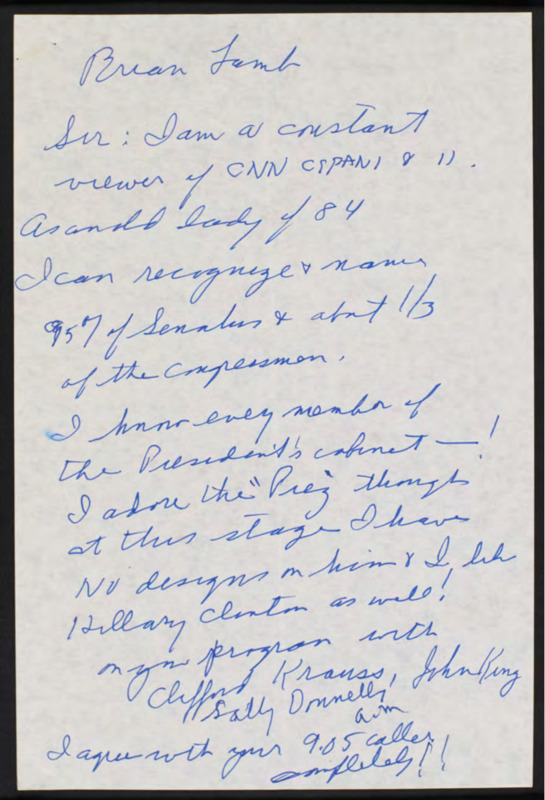 Brian Lamb
Sir: I am a constant
viewer of CNN CSPAN I & II.
As an old lady of 84
I can recognize & name
95% of Senators & about 1/3
of the congressmen.
I know every member of
the President's cabinet —!
I adore the "Prez" though
at this stage I have
No designs on him & I like
Hillary Clinton as well!
on your program with
Clifford Krauss, John King
Sally Donnelly
I agree with your 9:05 am caller
completely!!